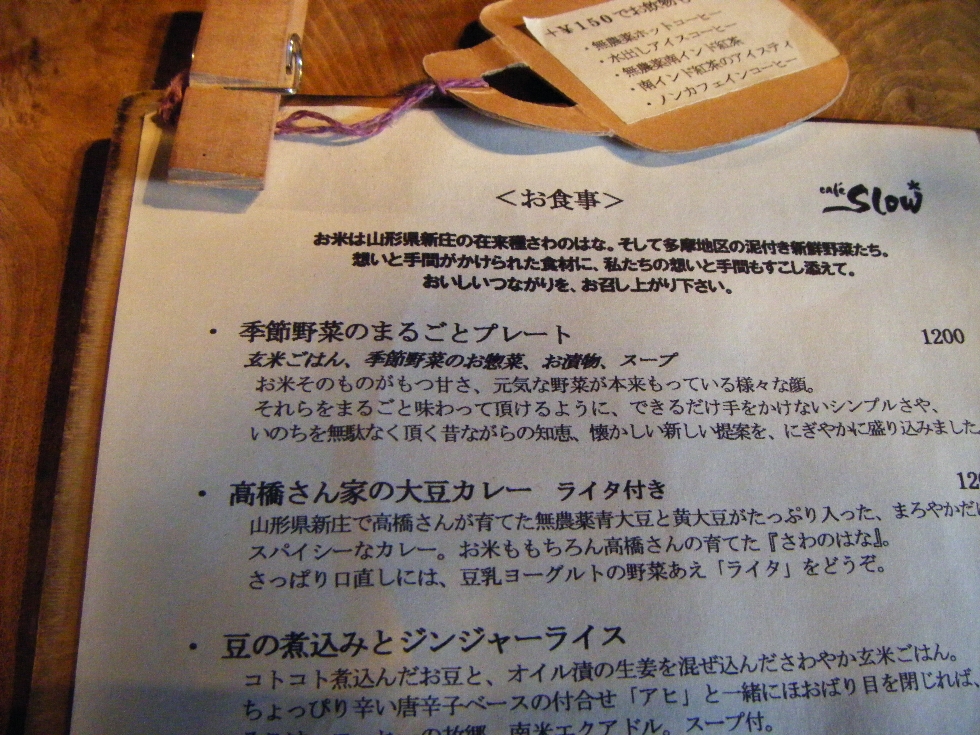 +¥150でお飲物も
・無農薬ホットコーヒー
・水出しアイスコーヒー
・無農薬南インド紅茶
・南インド紅茶のアイスティ
・ノンカフェインコーヒー
＜お食事＞
café Slow
お米は山形県新庄の在来種さわのはな。そして多摩地区の泥付き新鮮野菜たち。
想いと手間がかけられた食材に、私たちの想いと手間もすこし添えて。
おいしいつながりを、お召し上がり下さい。
・季節野菜のまるごとプレート 1200
玄米ごはん、季節野菜のお惣菜、お漬物、スープ
お米そのものがもつ甘さ、元気な野菜が本来もっている様々な顔。
それらをまるごと味わって頂けるように、できるだけ手をかけないシンプルさや、
いのちを無駄なく頂く昔ながらの知恵、懐かしい新しい提案を、にぎやかに盛り込みました
・高橋さん家の大豆カレー ライタ付き 120
山形県新庄で高橋さんが育てた無農薬青大豆と黄大豆がたっぷり入った、まろやかだけ
スパイシーなカレー。お米ももちろん高橋さんの育てた『さわのはな』。
さっぱり口直しには、豆乳ヨーグルトの野菜あえ「ライタ」をどうぞ。
・豆の煮込みとジンジャーライス
コトコト煮込んだお豆と、オイル漬の生姜を混ぜ込んださわやか玄米ごはん。
ちょっぴり辛い唐辛子ベースの付合せ「アヒ」と一緒にほおばり目を閉じれば、
の故郷、南米エクアドル。スープ付。